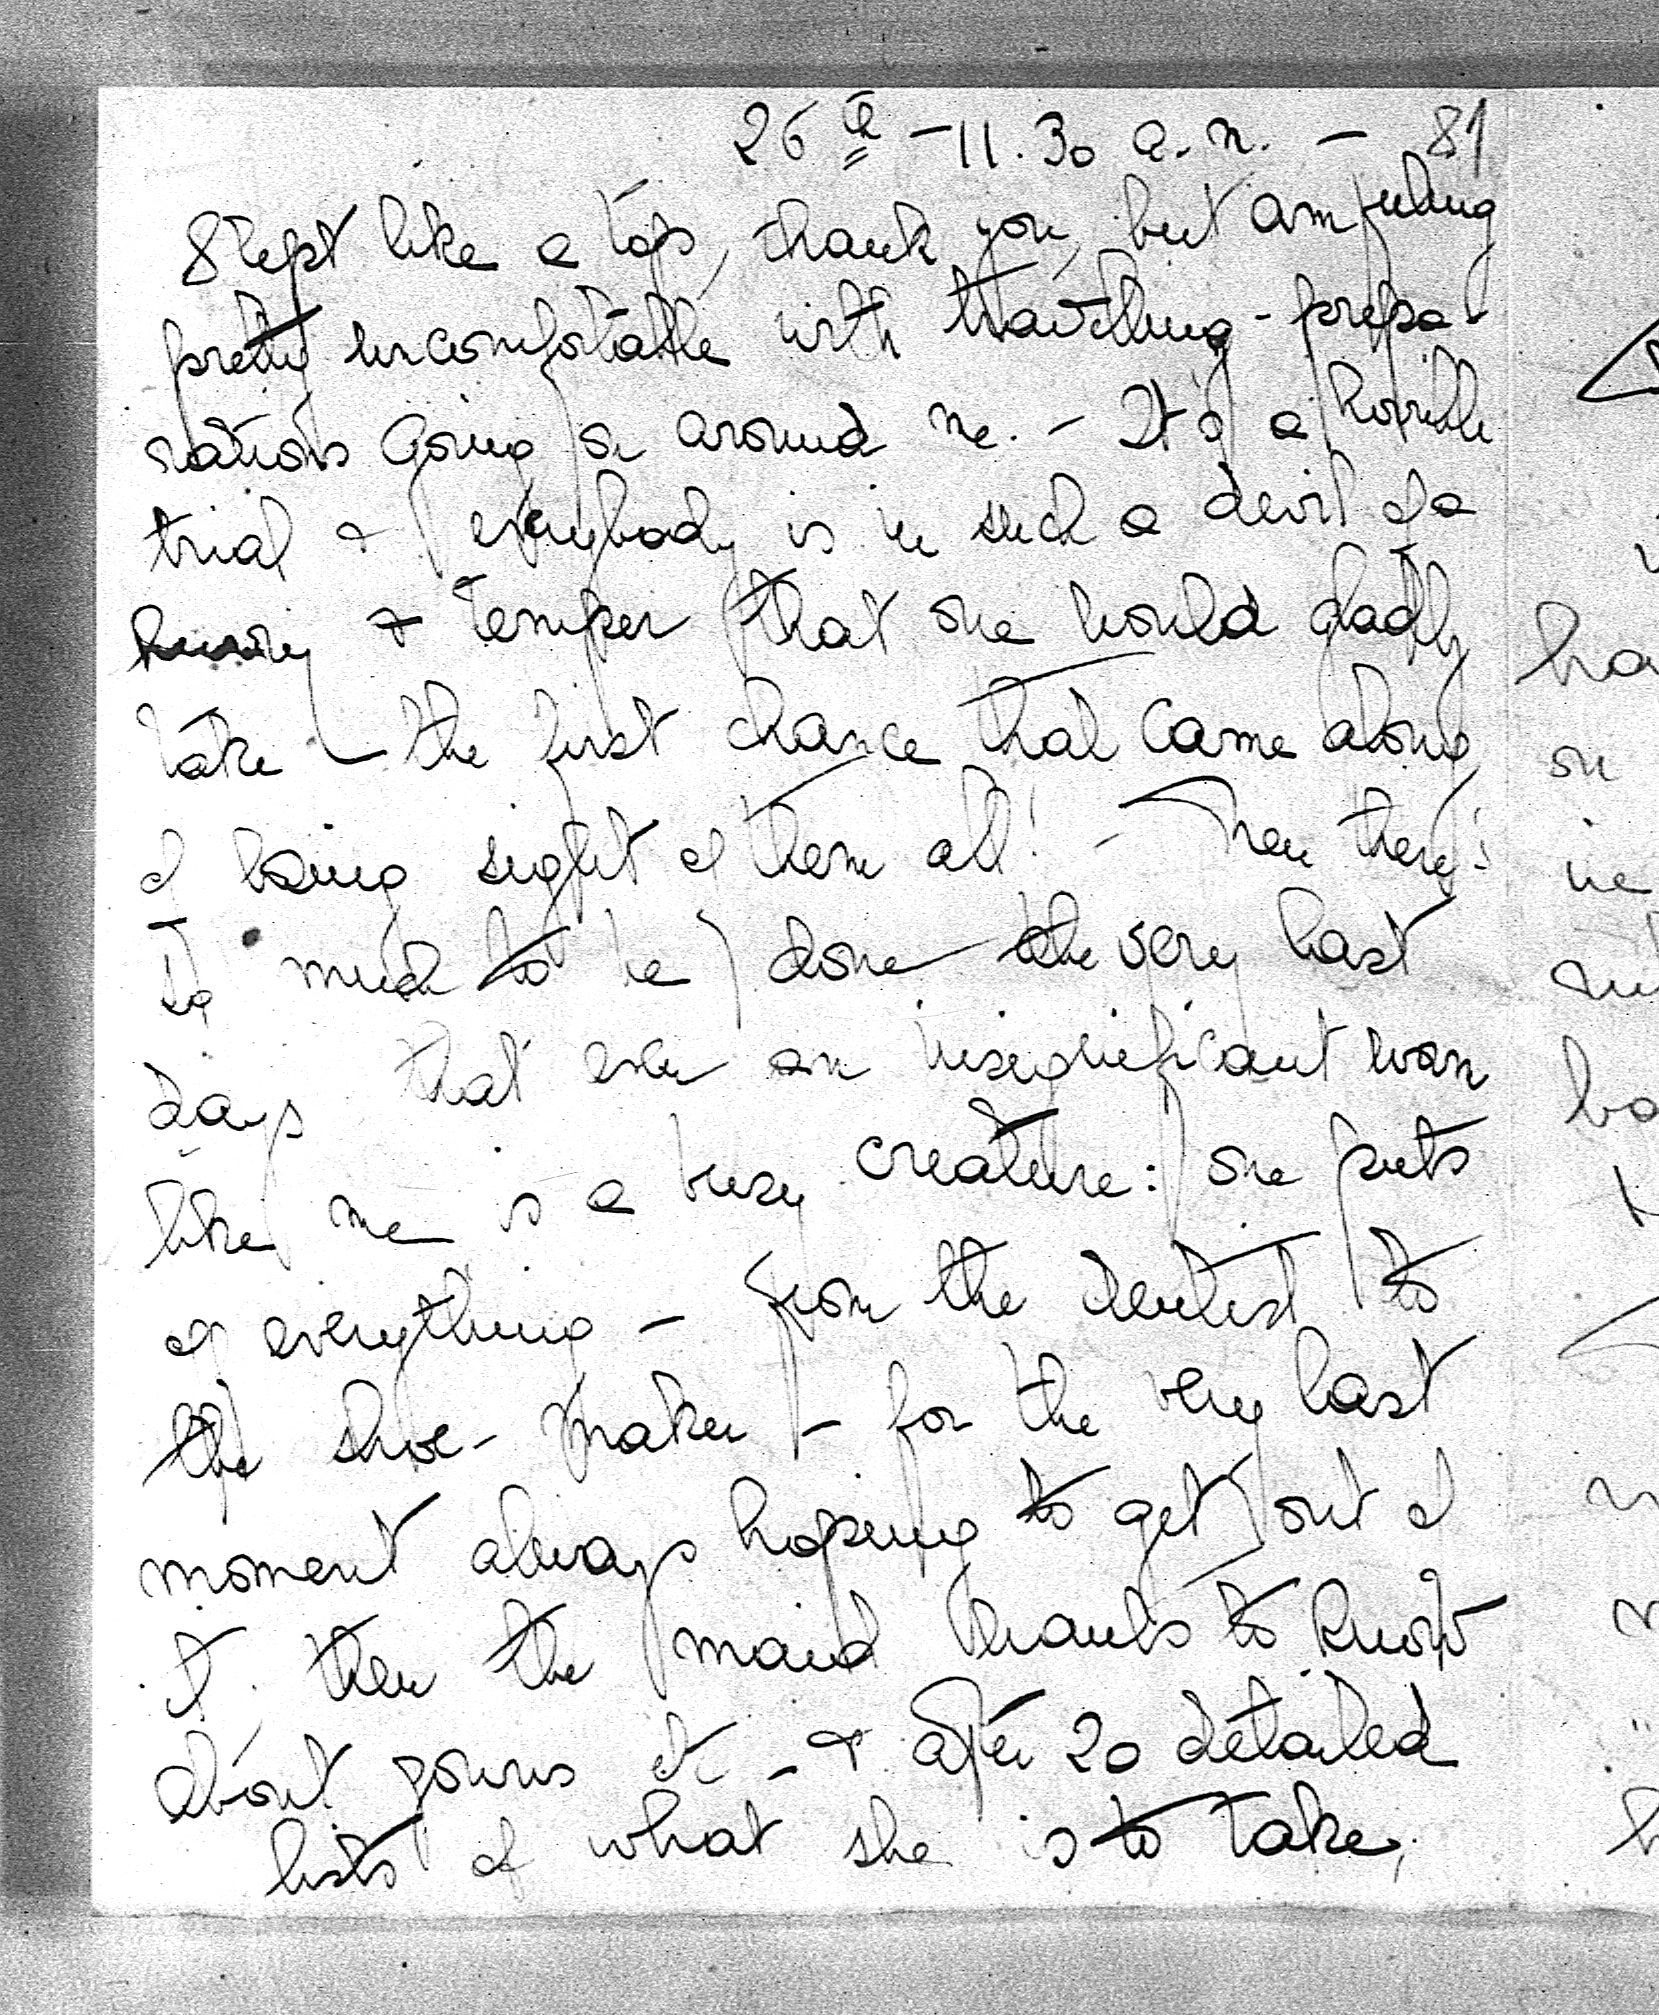 26th - 11.30 a.m. - 81
Slept like a top, thank you, but am feeling
pretty uncomfortable with travelling-prepa-
rations going on around me. - It's a horrible
trial & everybody is in such a devil of a
hurry & temper that one would gladly
take the first chance that came along
of losing sight of them all! - Then there's
so much to be done the very last
days that even an insignificant
like me is a busy creature: one puts
of everything - from the dentist to
the shoe-maker - for the very last
moment always hoping to get out of
it, then the maid wants to know
about gowns etc - & after 20 detailed
lists of what she is to take,